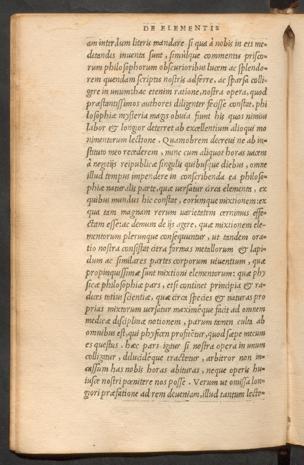 DE ELEMENTIS
am interdum literis mandare si qua à nobis in eis me-
ditandis inuenta sunt, simúlque commentis prisco-
rum philosophorum obscurioribus lucem ac splendo-
rem quendam scriptis nostris adferre, ac sparsa colli-
gere in unum: hac etenim ratione, nostra opera, quod
præstantissimos authores diligenter fecisse constat, phi
losophiæ mysteria magis obuia fiunt his quos nimius
labor & longior deterret ab excellentium aliquot mo
numentorum lectione. Quamobrem decreui ne ab in-
stituto meo recederem, nunc cum aliquot horas uacem
à negotijs reipublicæ singulis quibusque diebus, omne
illud tempus impendere in conscribenda ea philoso-
phiæ naturalis parte, quæ uersatur circa elementa, ex
quibus mundus hic constat, eorúmque mixtionem: ex
qua tam magnam rerum uarietatem cernimus effe-
ctam esse: ac demum de ijs agere, quæ mixtionem ele-
mentorum plerunque consequuntur, ut tandem ora-
tio nostra consistat circa formas metallorum & lapi-
dum ac similares partes corporum uiuentium, quæ
propinquissimæ sunt mixtioni elementorum: quæ phy
sicæ philosophiæ pars, etsi continet principia & ra-
dices totius scientiæ, quæ circa species & naturas pro
prias mixtorum uersatur maximéque facit ad omnem
medicæ disciplinæ notionem, parum tamen culta ab
omnibus est, qui physicen profitentur, quod sæpe mecum
es questus. hæc pars igitur si nostra opera in unum
colligitur, dilucidéque tractetur, arbitror non in-
cassum has nobis horas abituras, neque operis hu-
iusce nostri pœnitere nos posse. Verum ut omissa lon-
gori præfatione ad rem deueniam, illud tantum lecto-